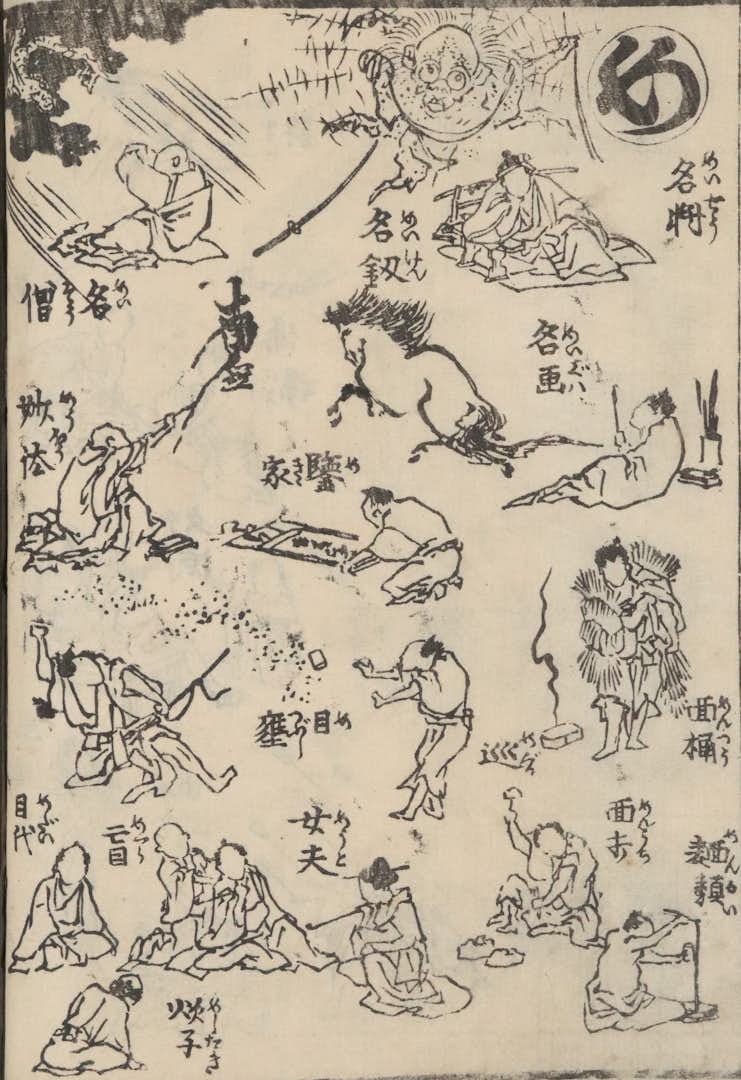 め
名将
めいせう
名釼
めいけん
名僧
めいそう
名画
めいぐハ
南無
妙法
めうほう
鑒家
めきき
面桶
めんつう
目壅
めつぶし
面打
めんうち
麺類
めんるい
女夫
めうと
めくら
目代
めだい
めしたき